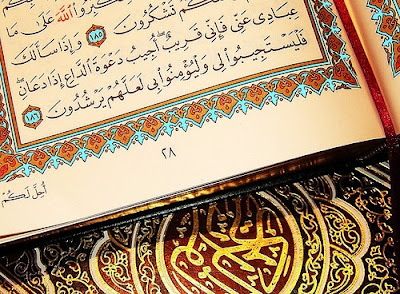 الله عَلَىٰ مَا
تَشْكُرُونَ ١٨٥ وَإِذَا سَأَلَكَ
عِبَادِى عَنِّى فَإِنِّى قَرِيبٌ أُجِيبُ دَعْوَةَ ٱلدَّاعِ إِذَا دَعَانِ
فَلْيَسْتَجِيبُوا۟ لِى وَلْيُؤْمِنُوا۟ بِى لَعَلَّهُمْ يَرْشُدُونَ ١٨٦
٢٨
أُحِلَّ لَكُمْ